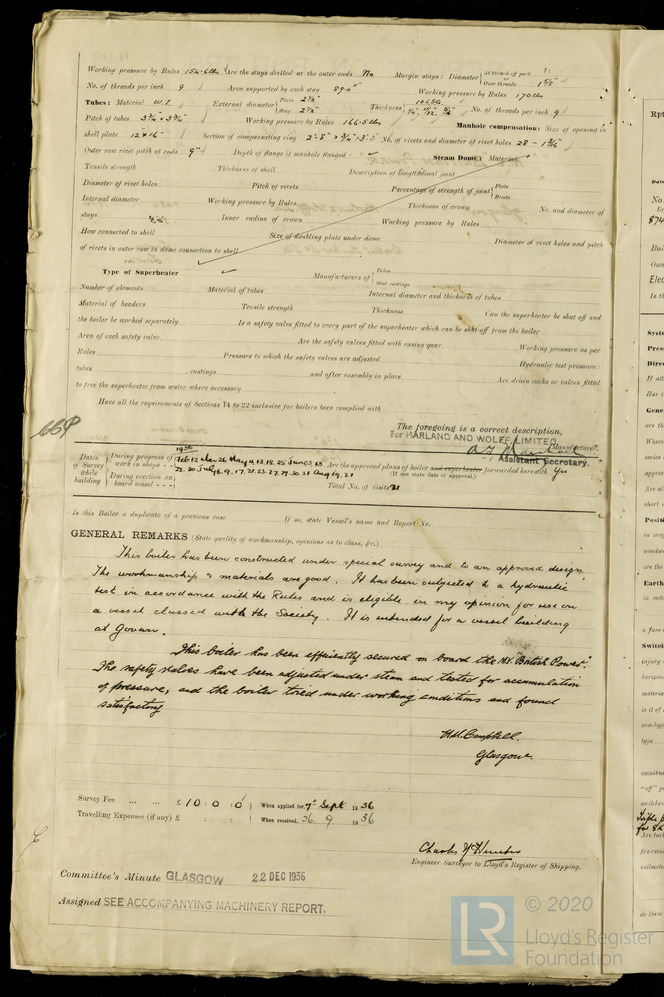 Working pressure by Rules 154.6 lbs Are the stays drilled at the outer ends No Margin stays: Diameter { At turned off part, Over threads 1 5/8"
No. of threads per inch 9 Area supported by each stay 89.4 □" Working pressure by Rules 170 lbs
Tubes: Material W.I. External diameter { Plain 2½" Stay 2½" Thickness { 10 LSG No. of threads per inch 9
Pitch of tubes 3¾" x 3¾" Working pressure by Rules 166.5 lbs Manhole compensation: Size of opening in
shell plate 12" x 16" Section of compensating ring No. of rivets and diameter of rivet holes 28 - 1 3/16"
Outer row rivet pitch at ends 9" Depth of flange if manhole flanged Steam Dome: Material
Tensile strength Thickness of shell Description of longitudinal joint
Diameter of rivet holes Pitch of rivets Percentage of strength of joint { Plate Rivets
Internal diameter Working pressure by Rules Thickness of crown No. and diameter of
stays Inner radius of crown Working pressure by Rules
How connected to shell Size of doubling plate under dome Diameter of rivet holes and pitch
of rivets in outer row in dome connection to shell
Type of Superheater Manufacturers of { Tubes Steel castings
Number of elements Material of tubes Internal diameter and thickness of tubes
Material of headers Tensile strength Thickness Can the superheater be shut off and
the boiler be worked separately Is a safety valve fitted to every part of the superheater which can be shut off from the boiler
Area of each safety valve Are the safety valves fitted with easing gear Working pressure as per
Rules Pressure to which the safety valves are adjusted Hydraulic test pressure:
tubes , castings and after assembly in place Are drain cocks or valves fitted
to free the superheater from water where necessary
Have all the requirements of Sections 14 to 22 inclusive for boilers been complied with
The foregoing is a correct description,
For HARLAND AND WOLFF, LIMITED. Manufacturer.
Assistant Secretary.
1936
Dates of Survey while building { During progress of work in shops - - During erection on board vessel - - -
Feb 12 Mar 26 May 4, 13, 18, 25 June 3, 13
22, 30 July 6, 9, 17, 21, 23, 27, 29, 30, 31 Aug 19, 21
Are the approved plans of boiler and superheater forwarded herewith Yes
(If not state date of approval.)
Total No. of visits 21
Is this Boiler a duplicate of a previous case If so, state Vessel's name and Report No.
GENERAL REMARKS (State quality of workmanship, opinions as to class, &c.)
This boiler has been constructed under special survey and to an approved design.
The workmanship & materials are good. It has been subjected to a hydraulic
test in accordance with the Rules and is eligible in my opinion for use on
a vessel classed with the Society. It is intended for a vessel building
at Govan.
This boiler has been efficiently secured on board the M.V. "British Power".
The safety valves have been adjusted under steam and tested for accumulation
of pressure, and the boiler tried under working conditions and found
satisfactory
Glasgow
Survey Fee ... ... £ 10 : 0 : 0 When applied for, 7th Sept 1936
Travelling Expenses (if any) £ : : When received, 9 1936
Engineer Surveyor to Lloyd's Register of Shipping.
Committee's Minute GLASGOW 22 DEC 1936
Assigned SEE ACCOMPANYING MACHINERY REPORT.
LR © 2020
Lloyd's Register
Foundation